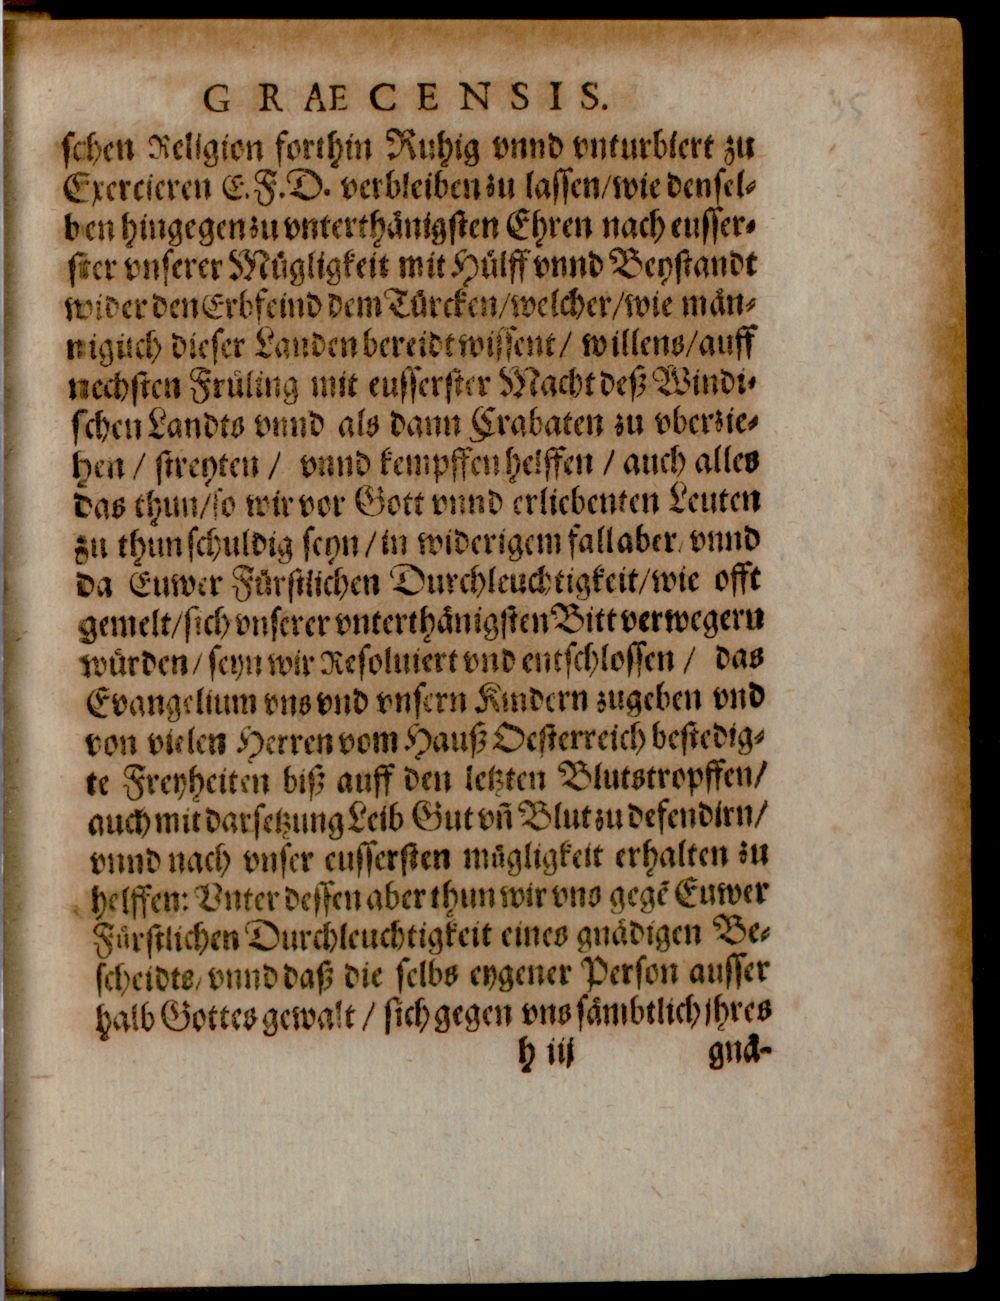 GRAECENSIS.
schen Religion forthin Ruhig vnnd vnturbiert zu
Exercieren E. F. D. verbleiben zu lassen/wie densel-
ben hingegen zu vnterthänigsten Ehren nach eusser-
ster vnserer Mügligkeit mit Hülff vnnd Beystandt
wider den Erbfeind dem Türcken/welcher/wie män-
niglich dieser Landen bereidt wissent/ willens/auff
nechsten Früling mit eusserster Macht deß Windi-
schen Landts vnnd als dann Crabaten zu vberzie-
hen / streyten / vnnd kempffen helffen / auch alles
das thun/so wir vor Gott vnnd erliebenten Leuten
zu thun schuldig seyn/in widerigem fall aber vnnd
da Euwer Fürstlichen Durchleuchtigkeit/wie offt
gemelt/sich vnserer vnterthänigsten Bitt verwegern
würden/ seyn wir Resoluiert vnd entschlossen / das
Evangelium vns vnd vnsern Kindern zugeben vnd
von vielen Herren vom Hauß Oesterreich bestedig-
te Freyheiten biß auff den letzten Blutstropffen/
auch mit darsetzung Leib Gut vñ Blut zu defendirn/
vnnd nach vnser eussersten mügligkeit erhalten zu
helffen: Vnter dessen aber thun wir vns gegẽ Euwer
Fürstlichen Durchleuchtigkeit eines gnädigen Be-
scheidts/ vnnd daß die selbs eygener Person ausser
halb Gottes gewalt / sich gegen vns sämbtlich jhres
h iij gnä-